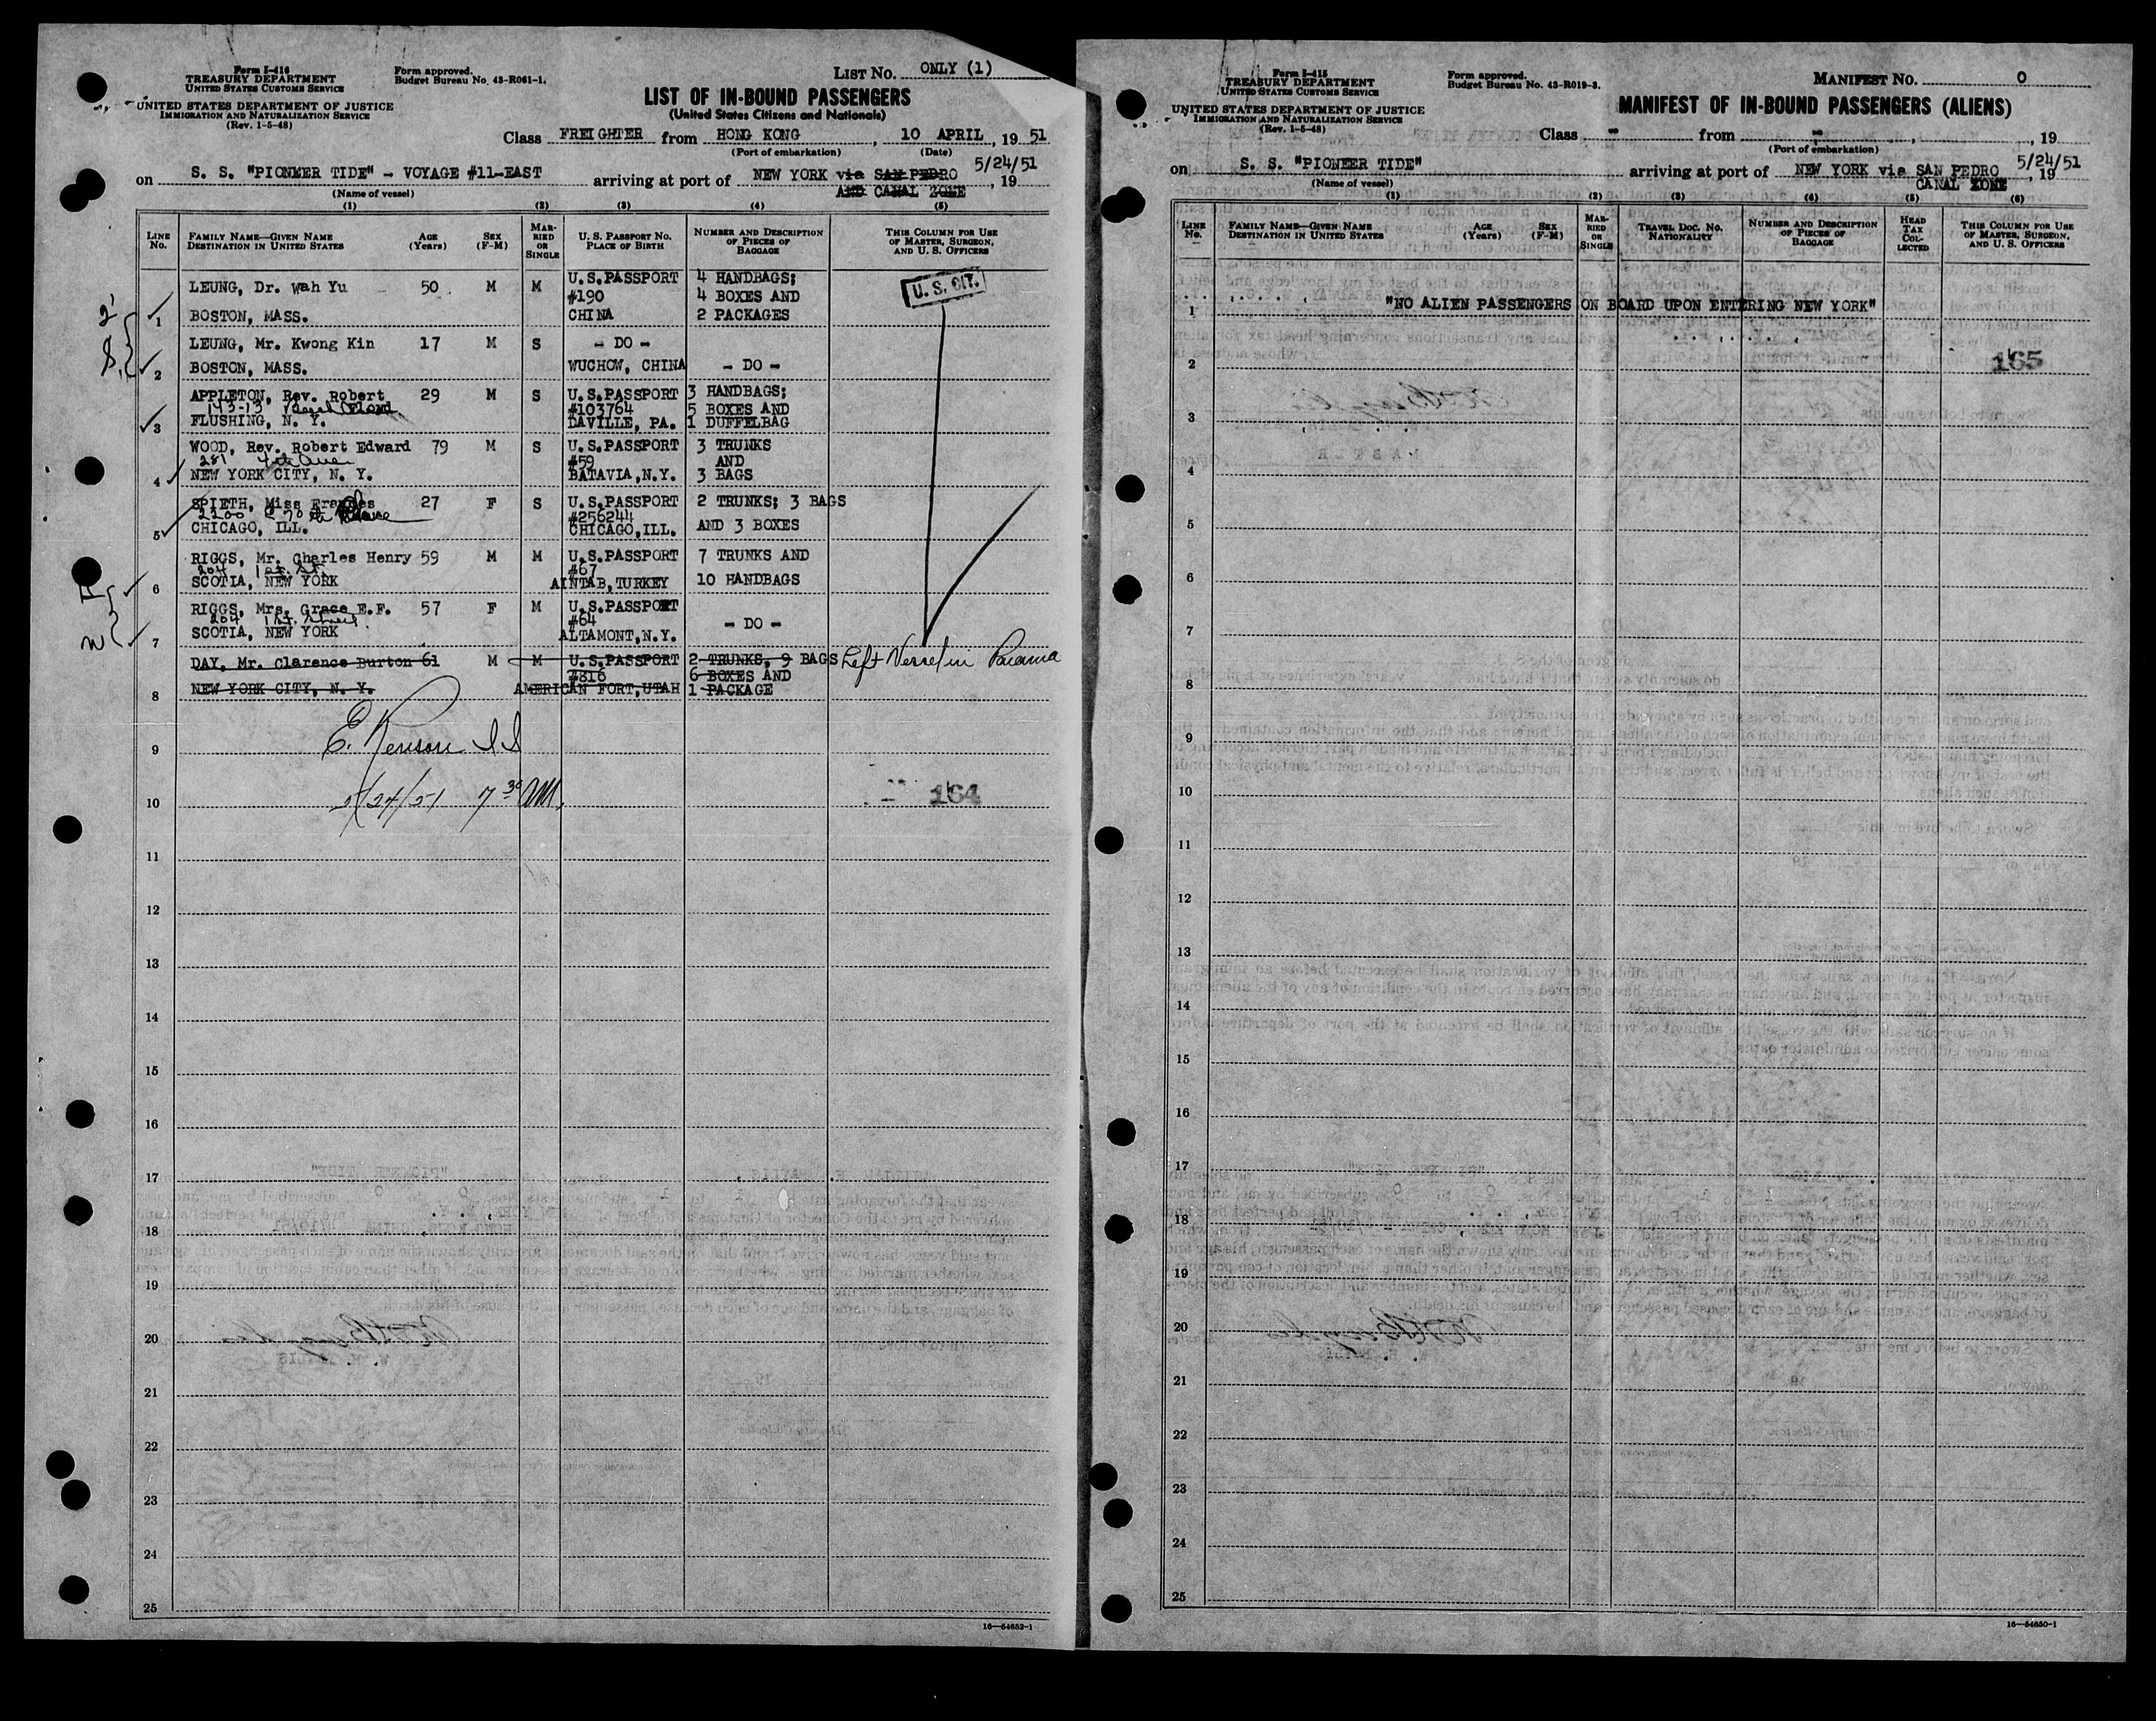 Form I-416
TREASURY DEPARTMENT
UNITED STATES CUSTOMS SERVICE
UNITED STATES DEPARTMENT OF JUSTICE
IMMIGRATION AND NATURALIZATION SERVICE
(Rev. 1-5-48)
Form approved.
Budget Bureau No. 43-R061-1.
LIST NO. ONLY (1)
LIST OF IN-BOUND PASSENGERS
(United States Citizens and Nationals)
Class FREIGHTER from HONG KONG, 10 APRIL, 19 51
(Port of embarkation) (Date)
on S. S. "PIONEER TIDE" - VOYAGE #11-EAST arriving at port of NEW YORK via SAN PEDRO 5/24/51, 19
AND CANAL ZONE
(Name of vessel)
(1) (2) (3) (4) (5)
LINE No. FAMILY NAME—GIVEN NAME DESTINATION IN UNITED STATES AGE (Years) SEX (F-M) MARRIED OR SINGLE U. S. PASSPORT NO. PLACE OF BIRTH NUMBER AND DESCRIPTION OF PIECES OF BAGGAGE THIS COLUMN FOR USE OF MASTER, SURGEON, AND U. S. OFFICERS
LEUNG, Dr. Wah Yu 50 M M U.S.PASSPORT 4 HANDBAGS; U. S. CIT.
#190 4 BOXES AND
1 BOSTON, MASS. CHINA 2 PACKAGES
LEUNG, Mr. Kwong Kin 17 M S - DO -
2 BOSTON, MASS. WUCHOW, CHINA - DO -
APPLETON, Rev. Robert 29 M S U.S.PASSPORT 3 HANDBAGS;
143-13 #103764 5 BOXES AND
3 FLUSHING, N. Y. DAVILLE, PA. 1 DUFFELBAG
WOOD, Rev. Robert Edward 79 M S U.S.PASSPORT 3 TRUNKS
281 #59 AND
4 NEW YORK CITY, N. Y. BATAVIA,N.Y. 3 BAGS
SPIETH, Miss Frances 27 F S U.S.PASSPORT 2 TRUNKS; 3 BAGS
2200 E 70 #256244
5 CHICAGO, ILL. CHICAGO,ILL. AND 3 BOXES
RIGGS, Mr. Charles Henry 59 M M U.S.PASSPORT 7 TRUNKS AND
204 1st. St. #67
6 SCOTIA, NEW YORK AINTAB, TURKEY 10 HANDBAGS
RIGGS, Mrs. Grace E.F. 57 F M U.S.PASSPORT
204 1st. Street #64 - DO -
7 SCOTIA, NEW YORK ALTAMONT,N.Y.
DAY, Mr. Clarence Burton 61 M M U.S.PASSPORT 2 TRUNKS, 9 BAGS Left Vessel in Panama
#816 6 BOXES AND
8 NEW YORK CITY, N. Y. AMERICAN FORT,UTAH 1 PACKAGE
9
5/24/51 7 30 AM.
10 164
11
12
13
14
15
16
17
18
19
20
21
22
23
24
25
16—54652-1
Form I-415
TREASURY DEPARTMENT
UNITED STATES CUSTOMS SERVICE
UNITED STATES DEPARTMENT OF JUSTICE
IMMIGRATION AND NATURALIZATION SERVICE
(Rev. 1-5-48)
Form approved.
Budget Bureau No. 43-R019-3.
MANIFEST NO. 0
MANIFEST OF IN-BOUND PASSENGERS (ALIENS)
Class - from -, 19
(Port of embarkation)
on S. S. "PIONEER TIDE" arriving at port of NEW YORK via SAN PEDRO 5/24/51, 19
CANAL ZONE
(Name of vessel)
(1) (2) (3) (4) (5) (6)
LINE No. FAMILY NAME—GIVEN NAME DESTINATION IN UNITED STATES AGE (Years) SEX (F-M) MARRIED OR SINGLE TRAVEL DOC. NO. NATIONALITY NUMBER AND DESCRIPTION OF PIECES OF BAGGAGE HEAD TAX COLLECTED THIS COLUMN FOR USE OF MASTER, SURGEON, AND U. S. OFFICERS
1 "NO ALIEN PASSENGERS ON BOARD UPON ENTERING NEW YORK"
2 165
3
4
5
6
7
8
9
10
11
12
13
14
15
16
17
18
19
20
21
22
23
24
25
16—54650-1